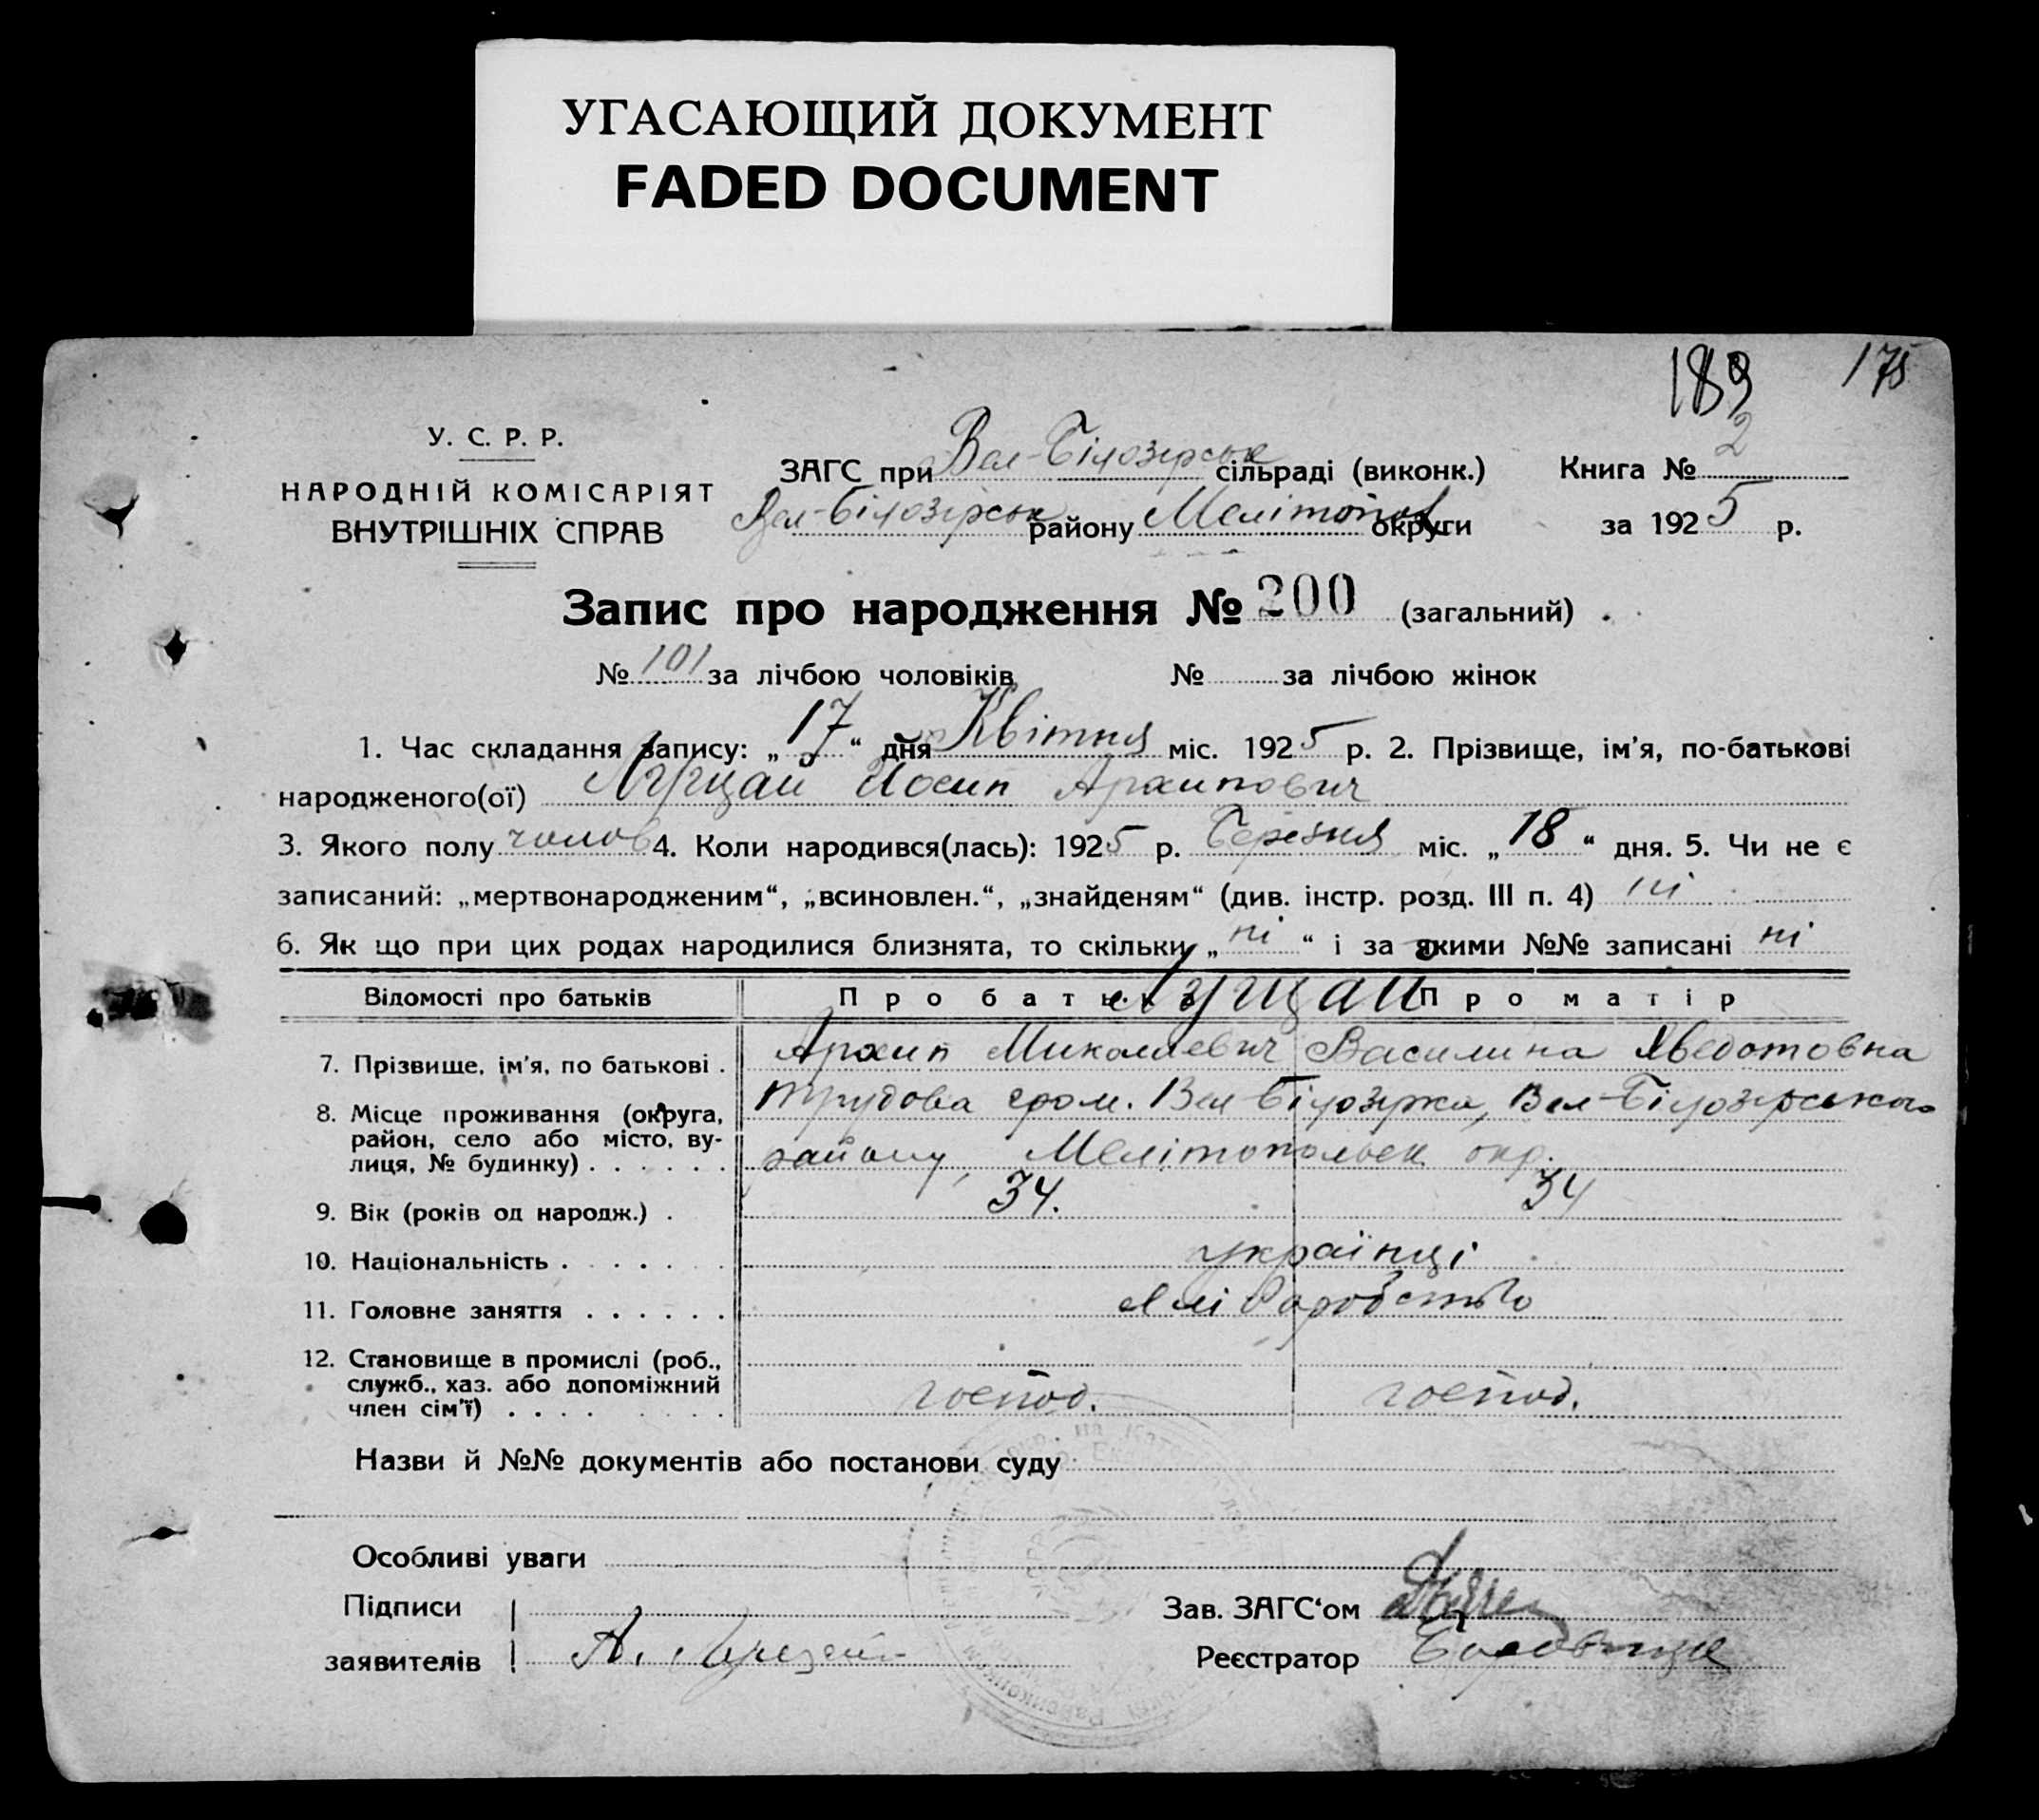 УГАСАЮЩИЙ ДОКУМЕНТ
FADED DOCUMENT
189 175
У. С. Р. Р.
НАРОДНІЙ КОМІСАРІЯТ
ВНУТРІШНІХ СПРАВ
ЗАГС при Вел-Білозерськ сільраді (виконк.) Книга № 2
Вел-Білозірськ району Мелітопол округи за 1925 р.
Запис про народження № 200 (загальний)
№ 101 за лічбою чоловіків № за лічбою жінок
1. Час складання запису: „ 17 “ дня Квітня міс. 1925 р. 2. Прізвище, ім'я, по-батькові
народженого(ої) Луцай Йосип Архипович
3. Якого полу чолов 4. Коли народився(лась): 1925 р. Березня міс. „ 18 “ дня. 5. Чи не є
записаний: „мертвонародженим“, „всиновлен.“, „знайденям“ (див. інстр. розд. III п. 4) ні
6. Як що при цих родах народилися близнята, то скільки „ ні “ і за якими №№ записані ні
Відомості про батьків Про батька Луцаи Про матір
7. Прізвище, ім'я, по батькові . Архип Миколаевич Василина Хведотовна
8. Місце проживання (округа, Трудова гром. Вел Білозірка, Вел-Білозірського
район, село або місто, ву-
лиця, № будинку) . . . . . . району, Мелітопольск окр.
9. Вік (років од народж.) . 34. 34
10. Національність . . . . . . українці
11. Головне заняття . . . . . . хліборобство
12. Становище в промислі (роб.,
служб., хаз. або допоміжний
член сім'ї) . . . . господ. господ.
Назви й №№ документів або постанови суду
Особливі уваги
Підписи Зав. ЗАГС'ом
заявителів А. Луцай Реєстратор